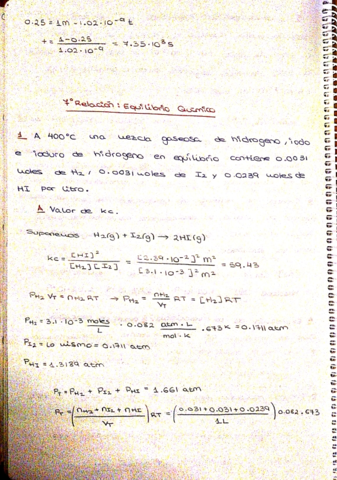 0.25 = 1M - 1.02·10⁻⁹ t
t = (1-0.25)/(1.02·10⁻⁹) = 7.35·10⁸ s
7ª Relación: Equilibrio Químico
1. A 400°C una mezcla gaseosa de hidrogeno, iodo
e ioduro de hidrogeno en equilibrio contiene 0.0031
moles de H₂, 0.0031 moles de I₂ y 0.0239 moles de
HI por litro.
A. Valor de Kc.
Suponemos H₂(g) + I₂(g) → 2HI(g)
Kc = [HI]²/([H₂][I₂]) = [2.39·10⁻²]² m²/([3.1·10⁻³]² m²) = 59.43
P_H₂ V_T = n_H₂ RT → P_H₂ = (n_H₂/V_T) RT = [H₂]RT
P_H₂ = 3.1·10⁻³ moles/L · 0.082 (atm·L)/(mol·K) · 673K = 0.1711 atm
P_I₂ = Lo mismo = 0.1711 atm
P_HI = 1.3189 atm
P_T = P_H₂ + P_I₂ + P_HI = 1.661 atm
P_T = ((n_H₂ + n_I₂ + n_HI)/V_T) RT = ((0.031+0.031+0.0239)/1L) 0.082·673